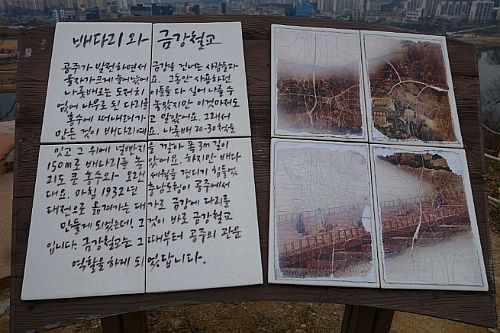 배다리와 금강철교
공주가 발전하면서 금강을 건너는 사람들과
물자가 크게 늘어났어요. 그동안 사용하던
나룻배로는 도저히 이들을 다 실어나를 수
없어 나무로 된 다리를 놓았지만 이것마저도
홍수에 떠내려가고 말았어요. 그래서
만든 것이 배다리예요. 나룻배 20-30척을
잇고 그 위에 널빤지를 깔아 폭 3m 길이
150m로 배다리를 놓았어요. 하지만 배다
리도 큰 홍수와 오랜 세월을 견디기 힘들었
대요. 마침 1932년 충남도청이 공주에서
대전으로 옮겨가는 대가로 금강에 다리를
만들게 되었는데, 그것이 바로 금강철교
입니다. 금강철교는 그때부터 공주의 관문
역할을 하게 되었답니다.